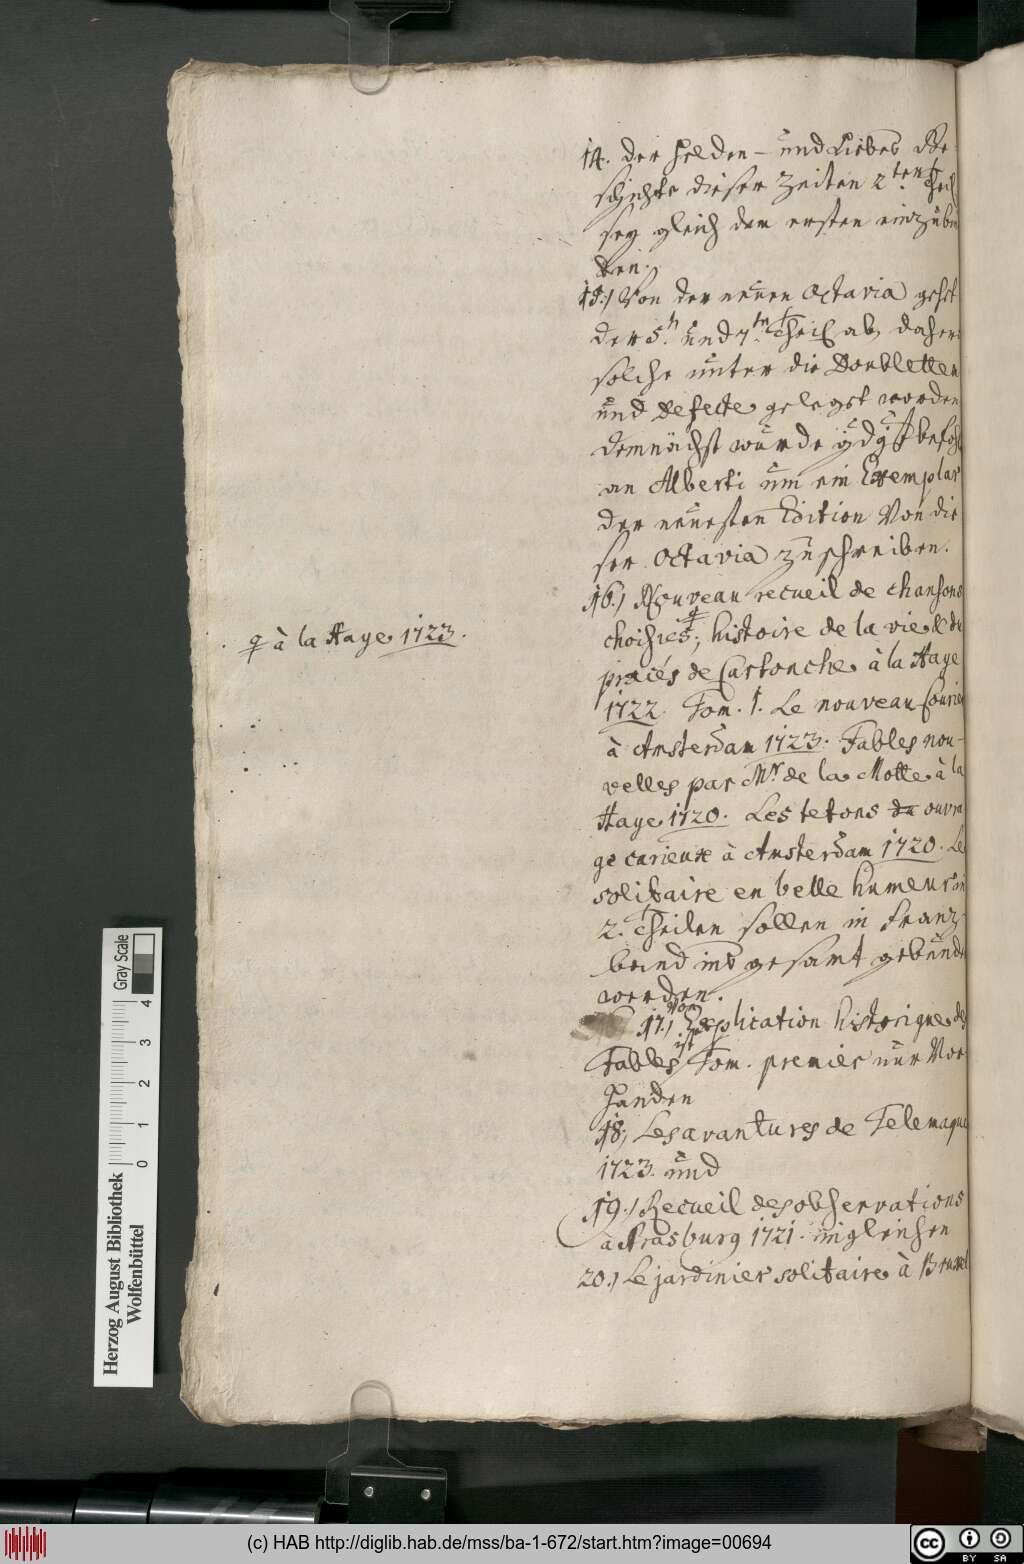 14. der Helden- und Liebes Ge-
schichte dieser Zeiten 2.ten Theil
sey gleich dem ersten einzubin
den.
15.) Von der neuen Octavia gehet
der 5.t und 7.ten Theil ab, daher
solche unter die Doubletten
und defecte gelegt worden
demnächst würde gdgst befohl
an Alberti um ein Exemplar
der neuesten Edition von die
ser Octavia zu schreiben.
16.) Nouveau recueil de chansons
choisies; histoire de la vie & du
procés de Cartouche à la Haye
à la Haye 1723.
1722. Tom. 1. Le nouveau Courier
à Amsterdam 1723. Fables nou-
velles par Mr de la Motte à la
Haye 1720. Les tetons du ouvra
ge curieux à Amsterdam 1720. Le
solitaire en belle humeur in
2. Theilen sollen in Franz-
band ins gesamt gebunde
werden.
17.) von Explication historique des
Fables ist Tom. premier nur Vor
handen
18.) Les avantures de Telemaque
1723. und
19.) Recueil des observations
à Strasburg 1721. imgleichen
20.) Le jardinier solitaire à Bruxel
Herzog August Bibliothek
Wolfenbüttel
0 1 2 3 4
Gray Scale
(c) HAB http://diglib.hab.de/mss/ba-1-672/start.htm?image=00694
cc BY SA